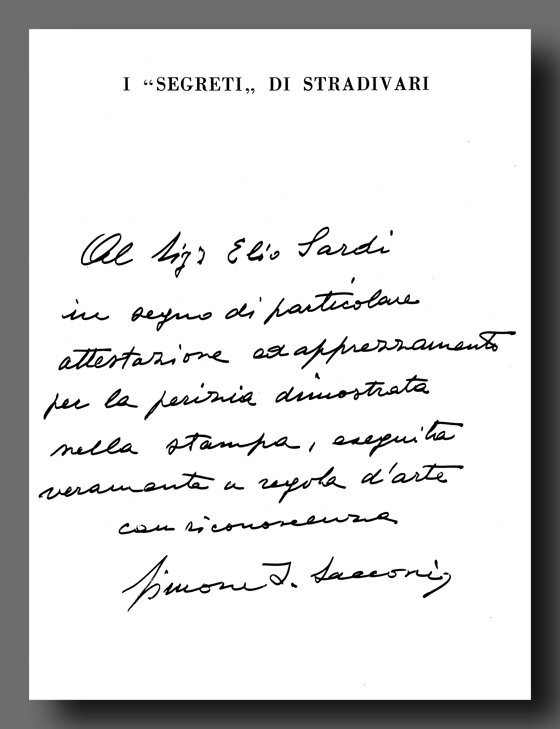 I “SEGRETI„ DI STRADIVARI
Al Sigr Elio Sardi
in segno di particolare
attestazione ed apprezzamento
per la perizia dimostrata
nella stampa, eseguita
veramente a regola d'arte
con riconoscenza
Simone F. Sacconi